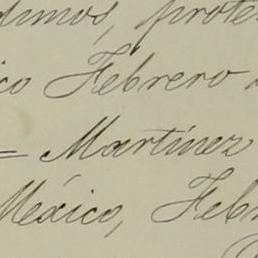 dimos, prote
co Febrero
= Martínez
México, Feb